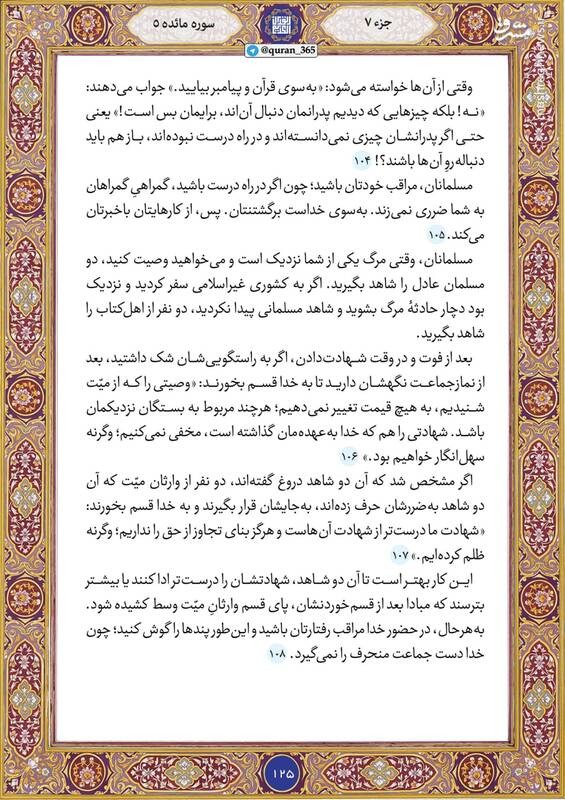 جزء ۷
سوره مائده ۵
@quran_365
وقتی از آن‌ها خواسته می‌شود: «به‌سوی قرآن و پیامبر بیایید.» جواب می‌دهند:
«نه! بلکه چیزهایی که دیدیم پدرانمان دنبال آن‌اند، برایمان بس است!» یعنی
حتی اگر پدرانشان چیزی نمی‌دانسته‌اند و در راه درست نبوده‌اند، باز هم باید
دنباله‌روِ آن‌ها باشند؟! ۱۰۴
مسلمانان، مراقب خودتان باشید؛ چون اگر در راه درست باشید، گمراهیِ گمراهان
به شما ضرری نمی‌زند. به‌سوی خداست برگشتنتان. پس، از کارهایتان باخبرتان
می‌کند. ۱۰۵
مسلمانان، وقتی مرگ یکی از شما نزدیک است و می‌خواهید وصیت کنید، دو
مسلمان عادل را شاهد بگیرید. اگر به کشوری غیراسلامی سفر کردید و نزدیک
بود دچار حادثهٔ مرگ بشوید و شاهد مسلمانی پیدا نکردید، دو نفر از اهل‌کتاب را
شاهد بگیرید.
بعد از فوت و در وقت شهادت‌دادن، اگر به راستگویی‌شان شک داشتید، بعد
از نماز جماعت نگهشان دارید تا به خدا قسم بخورند: «وصیتی را که از میّت
شنیدیم، به هیچ قیمت تغییر نمی‌دهیم؛ هرچند مربوط به بستگان نزدیکمان
باشد. شهادتی را هم که خدا به‌عهده‌مان گذاشته است، مخفی نمی‌کنیم؛ وگرنه
سهل‌انگار خواهیم بود.» ۱۰۶
اگر مشخص شد که آن دو شاهد دروغ گفته‌اند، دو نفر از وارثان میّت که آن
دو شاهد به‌ضررشان حرف زده‌اند، به‌جایشان قرار بگیرند و به خدا قسم بخورند:
«شهادت ما درست‌تر از شهادت آن‌هاست و هرگز بنای تجاوز از حق را نداریم؛ وگرنه
ظلم کرده‌ایم.» ۱۰۷
این کار بهتر است تا آن دو شاهد، شهادتشان را درست‌تر ادا کنند یا بیشتر
بترسند که مبادا بعد از قسم‌خوردنشان، پای قسم وارثانِ میّت وسط کشیده شود.
به‌هرحال، در حضور خدا مراقب رفتارتان باشید و این‌طور پندها را گوش کنید؛ چون
خدا دست جماعت منحرف را نمی‌گیرد. ۱۰۸
۱۲۵